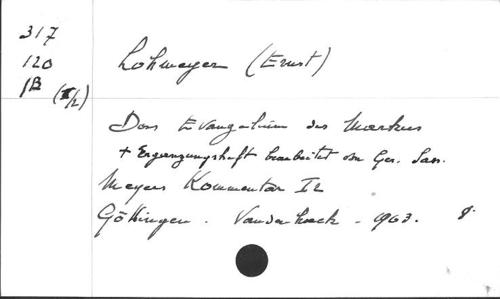 317
120
1B (I/2)
Lohmeyer (Ernst)
Das Evangelium des Markus
+ Ergänzungsheft bearbeitet von Ger. Sass.
Meyers Kommentar I 2
Göttingen. Vandenhoeck - 1963. 8.